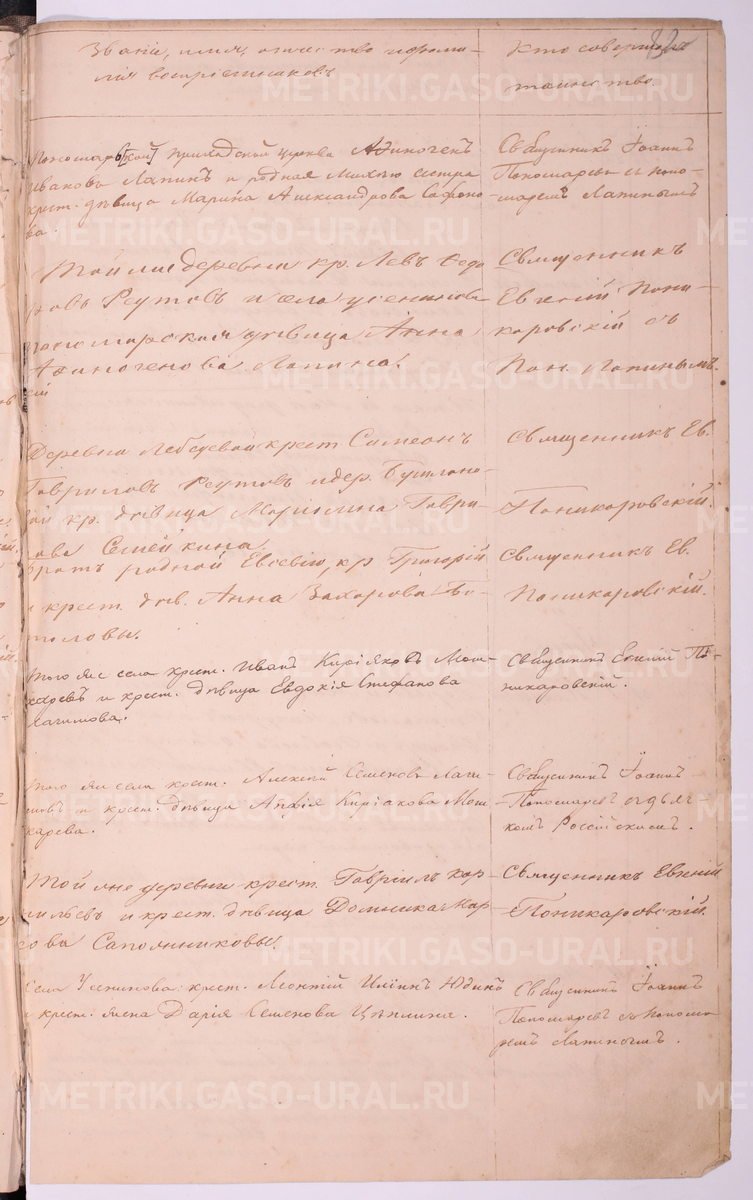 Званіе, имя, отчество и фами-
лія воспріемниковъ
Кто совершалъ
таинство.
приходской церкви Афиногенъ
Ивановъ Лапинъ и родная сестра
крест. дѣвица Марина Александрова Сафоно-
ва.
Священникъ Іоаннъ
Пономаревъ съ поно-
маремъ Лапинымъ
Той же деревни кр. Левъ Ѳедо
ровъ Реутовъ и села Усенинова
пономарская дѣвица Анна
Афиногенова Лапина.
Священникъ
Евгеній Пони-
каровскій съ
Пон. Лапинымъ.
Деревни крест. Симеонъ
Гавриловъ Реутовъ и дер.
кр. дѣвица Маріамна Гаври-
лова Семейкина.
Священникъ Ев.
Поникаровскій.
Братъ родной Евсевію, кр. Григорій
и крест. дѣв. Анна Захарова
Священникъ Ев.
Поникаровскій.
Того же села крест. Иванъ Киріяковъ Мош-
каревъ и крест. дѣвица Евдокія Стефанова
Священникъ Евгеній По-
никаровскій.
Того же села крест. Алексій Семеновъ
и крест. дѣвица Апфія Киріакова Мош-
карева.
Священникъ Іоаннъ
Пономаревъ съ дья-
комъ Россійскимъ.
Той же деревни крест. Гавріилъ Кор-
нильевъ и крест. дѣвица Домника Мар-
кова Сапожниковы.
Священникъ Евгеній
Поникаровскій.
Села Усенинова крест. Леонтій Ильинъ Юдинъ
и крест. жена Дарія Семенова Цѣплина.
Священникъ Іоаннъ
Пономаревъ съ понома-
ремъ Лапинымъ.
METRIKI.GASO-URAL.RU